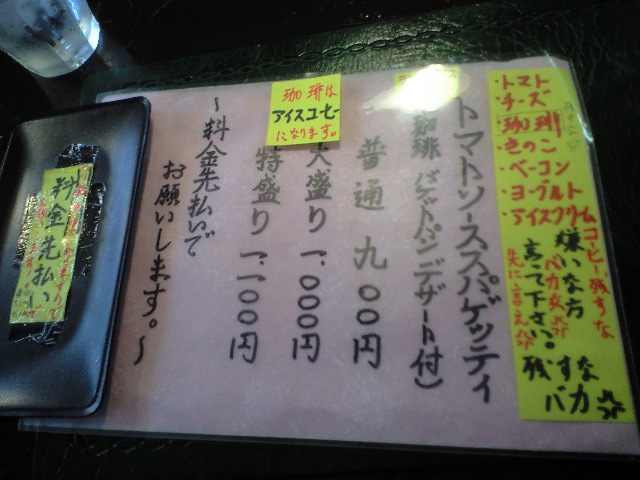 トマトソーススパゲッティ
珈琲 バゲットパン デザート付)
普通 九00円
大盛り 一、000円
特盛り 一、一00円
〜料金先払いで
お願いします。〜
珈琲は
アイスコーヒー
になります。
・トマト
・チーズ
・珈琲
・きのこ
・ベーコン
・ヨーグルト
・アイスクリーム
嫌いな方
言って下さい。
残すな
バカ
コーヒー残すな
バカ女
先に言え
料金先払い